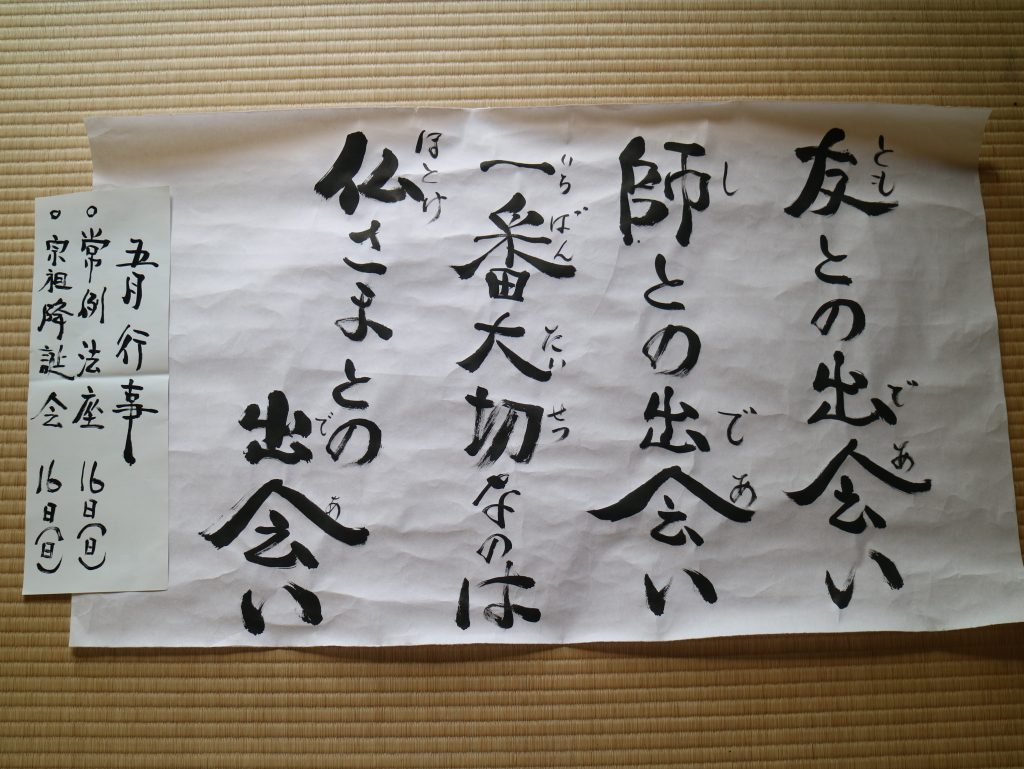 友との出会い
とも
で
あ
師との出会い
し
で
あ
一番大切なのは
いち
ばん
たい
せつ
仏さまとの
ほとけ
出会い
で
あ
五月行事
○常例法座 16日(日)
○宗祖降誕会 16日(日)